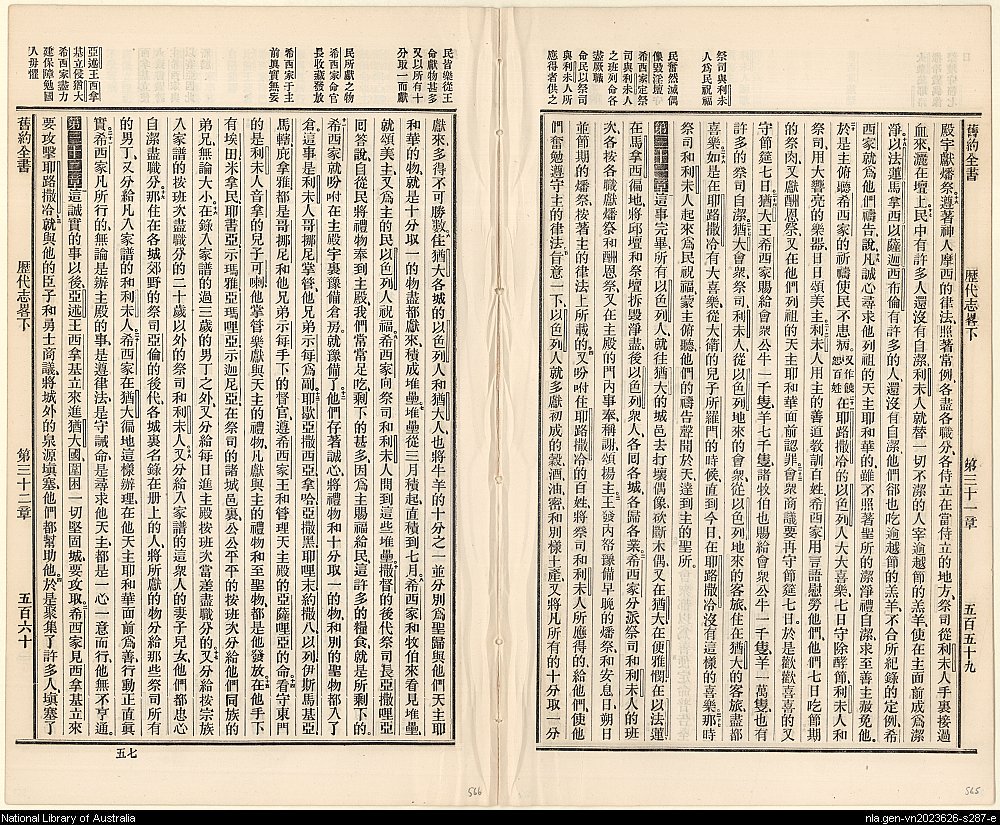 舊約全書 歷代志畧下 第三十一章 五百五十九
祭司與利未
人爲民祝福
民奮然滅偶
像毀淫壇
希西家定祭
司與利未人
之班列命各
盡厥職
命民以祭司
與利未人所
應得者供之
殿宇獻燔祭遵著神人摩西的律法照著常例各盡各職分各侍立在當侍立的地方祭司從利未人手裏接過
血來灑在壇上民中有許多人還沒有自潔利未人就替一切不潔的人宰逾越節的羔羊使在主面前成爲潔
淨以法蓮馬拿西以薩迦西布倫有許多的人還沒有自潔他們郤也吃逾越節的羔羊不合所紀錄的定例希
西家就爲他們禱告說凡誠心尋求他列祖的天主耶和華的雖不照著聖所的潔淨禮自潔求至善主赦免他
於是主俯聽希西家的祈禱使民不患病又作饒恕百姓在耶路撒冷的以色列人大大喜樂七日守除酵節利未人和
祭司用大響亮的樂器日日頌美主利未人用主的善道敎訓百姓希西家用言語慰勞他們他們七日吃節期
的祭肉又獻酬恩祭又在他們列祖的天主耶和華面前認罪會衆商議要再守節筵七日於是歡歡喜喜的又
守節筵七日猶大王希西家賜給會衆公牛一千隻羊七千隻諸牧伯也賜給會衆公牛一千隻羊一萬隻也有
許多的祭司自潔猶大會衆祭司利未人從以色列地來的會衆從以色列地來的客旅住在猶大的客旅盡都
喜樂如是在耶路撒冷有大喜樂從大衛的兒子所羅門的時候直到今日在耶路撒冷沒有這樣的喜樂那時
祭司和利未人起來爲民祝福蒙主俯聽他們的禱告聲聞於天達到主的聖所
第三十一章這事完畢所有以色列人就往猶大的城邑去打壞偶像砍斷木偶又在猶大在便雅憫在以法蓮
在馬拿西徧地將邱壇和祭壇拆毀淨盡後以色列衆人各囘各城各歸各業希西家分派祭司和利未人的班
次各按各職獻燔祭和酬恩祭又在主殿的門內事奉稱謝頌揚主王發內帑豫備早晚的燔祭和安息日朔日
並節期的燔祭按著主的律法上所載的又吩咐住耶路撒冷的百姓將祭司和利未人所應得的給他們使他
們奮勉遵守主的律法旨意一下以色列人就多獻初成的穀酒油蜜和別樣土產又將凡所有的十分取一分
民皆樂從王
命獻物甚多
又以所有十
分取一而獻
民所獻之物
希西家命官
長收藏發放
希西家于主
前眞實無妄
亞述王西拿
基立侵猶大
希西家盡力
建保障勉國
人毋懼
獻來多得不可勝數住猶大各城的以色列人和猶大人也將牛羊的十分之一並分別爲聖歸與他們天主耶
和華的物就是十分取一的物盡都獻來積成堆壘堆壘從三月積起直積到七月希西家和牧伯來看見堆壘
就頌美主又爲主的民以色列人祝福希西家向祭司和利未人問到這些堆壘撒督的後代祭司長亞撒哩亞
囘答說自從民將禮物奉到主殿我們常常足吃剩下的甚多因爲主賜福給民這許多的糧食就是所剩下的
希西家就吩咐在主殿宇裏豫備倉房就豫備了他們存著誠心將禮物和十分取一的物和別的聖物都入了
倉這事是利未人哥挪尼掌管他兄弟示每爲副耶歇亞撒西亞拿哈亞撒黑耶哩末約撒八以列伊斯馬基亞
馬轄庇拿雅都是哥挪尼和他兄弟示每手下的督官遵希西家王和管理天主殿的亞薩哩亞的命看守東門
的是利未人音拿的兒子可喇他掌管樂獻與天主的禮物凡獻與主的禮物和至聖物都是他發放在他手下
有埃田米拿民耶書亞示瑪雅亞瑪哩亞示迦尼亞在祭司的諸城邑裏公公平平的按班次分給他們同族的
弟兄無論大小在錄入家譜的過三歲的男丁之外又分給每日進主殿按班次當差盡職分的又分給按宗族
入家譜的按班次盡職分的二十歲以外的祭司和利未人又分給入家譜的這衆人的妻子兒女他們都忠心
自潔盡職分那住在各城郊野的祭司亞倫的後代各城裏名錄在册上的人將所獻的物分給那些祭司所有
的男丁又分給凡入家譜的和利未人希西家在猶大徧地這樣辦理在他天主耶和華面前爲善行動正直眞
實希西家凡所行的無論是辦主殿的事是遵律法是守誡命是尋求他天主都是一心一意而行他無不亨通
第三十二章這誠實的事以後亞述王西拿基立來進猶大國圍困一切堅固城要攻取希西家見西拿基立來
要攻擊耶路撒冷就與他的臣子和勇士商議將城外的泉源塡塞他們都幫助他於是聚集了許多人塡塞了
舊約全書 歷代志畧下 第三十二章 五百六十
七五
566
565
National Library of Australia
nla.gen-vn2023626-s287-e